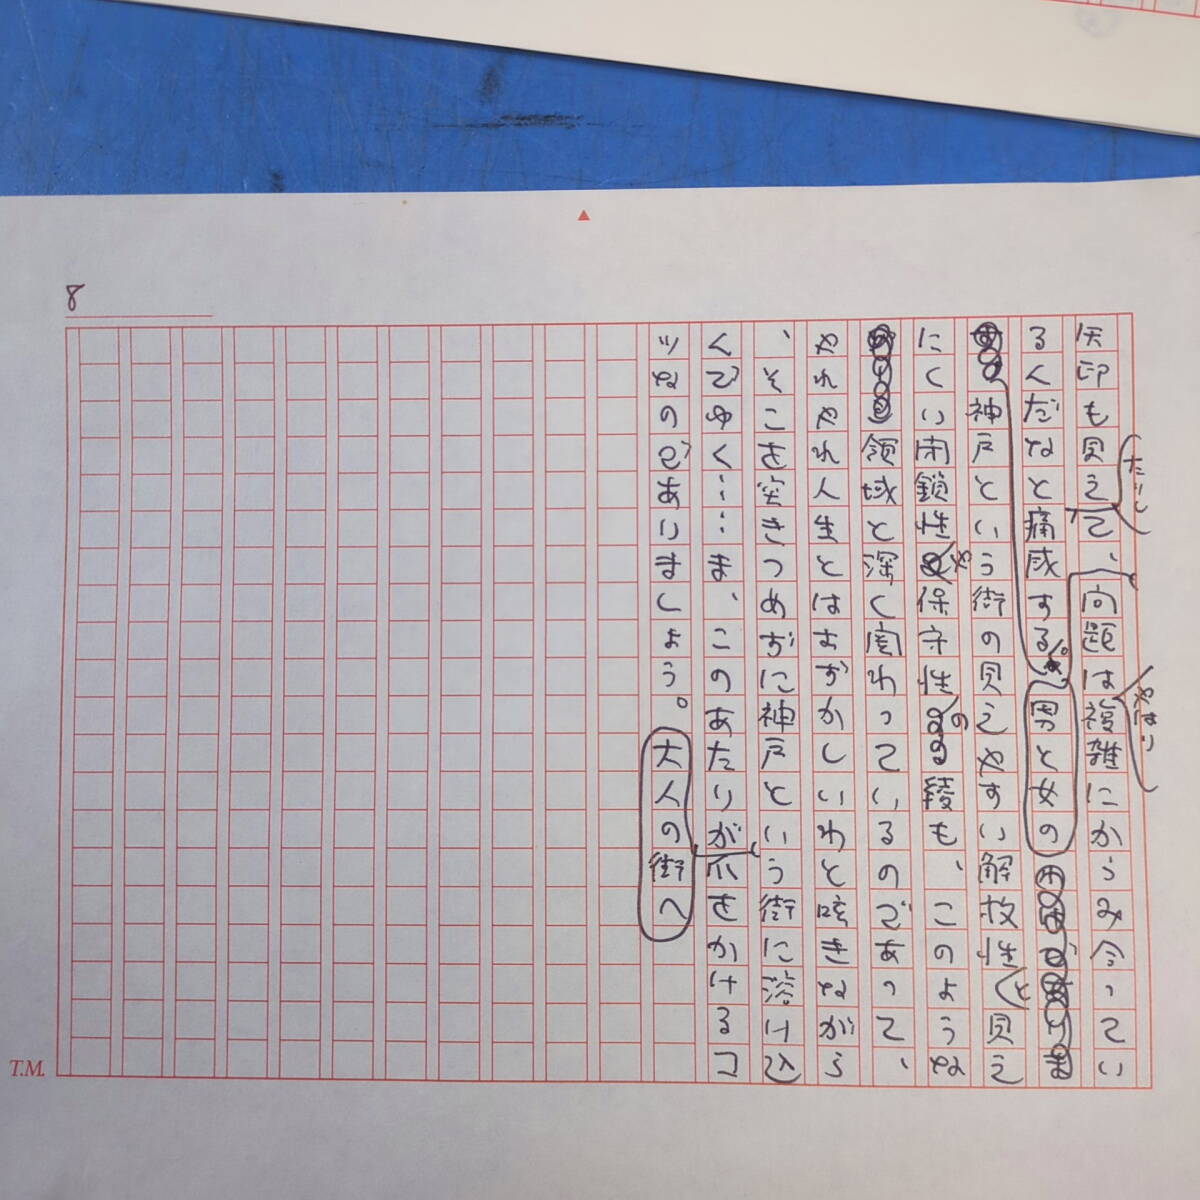 8
たりし
やはり
矢印も見えて、問題は複雑にからみ合ってい
るんだなと痛感する。男と女の
神戸という街の見えやすい解放性と見え
にくい閉鎖性や保守性の綾も、このような
領域と深く関わっているのであって、
やれやれ人生とはむずかしいわと呟きながら
、そこを突きつめずに神戸という街に溶け込
んでゆく……ま、このあたりが爪をかけるコ
ツなのでありましょう。大人の街へ
T.M.